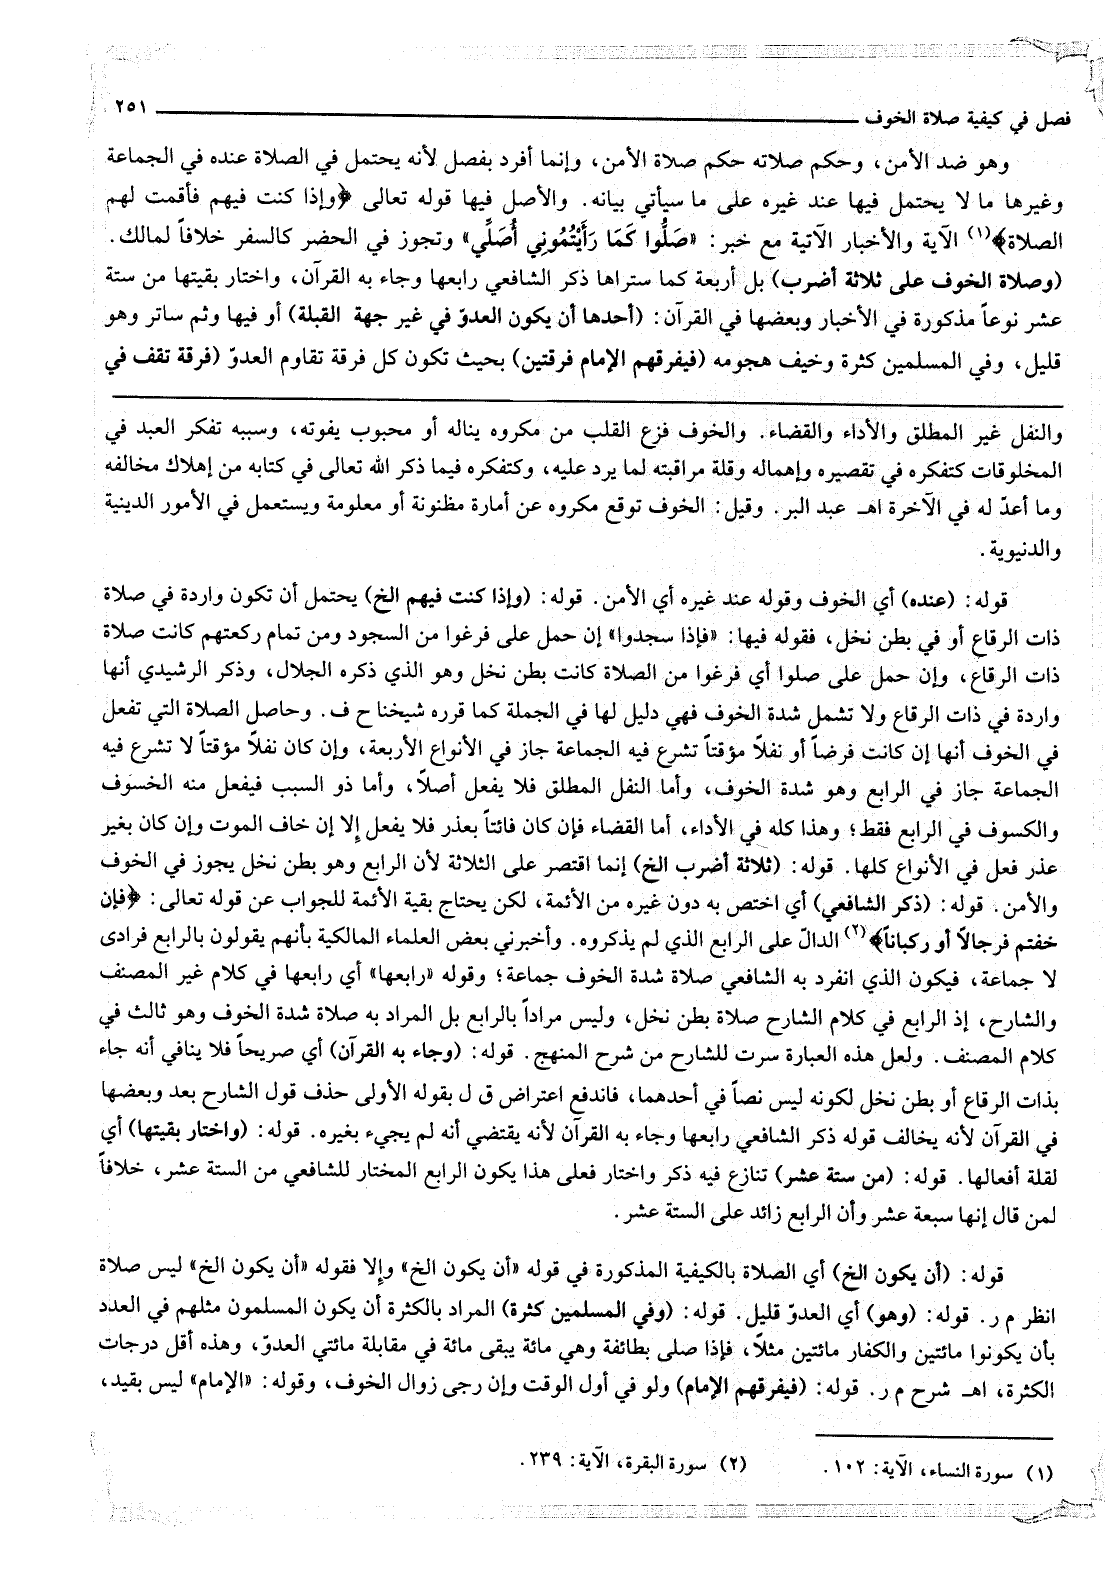 فصل في كيفية صلاة الخوف ٢٥١
وهو ضد الأمن، وحكم صلاته حكم صلاة الأمن، وإنما أفرد بفصل لأنه يحتمل في الصلاة عنده في الجماعة
وغيرها ما لا يحتمل فيها عند غيره على ما سيأتي بيانه. والأصل فيها قوله تعالى ﴿وإذا كنت فيهم فأقمت لهم
الصلاة﴾(١) الآية والأخبار الآتية مع خبر: «صَلُّوا كَمَا رَأَيْتُمُونِي أُصَلِّي» وتجوز في الحضر كالسفر خلافاً لمالك.
(وصلاة الخوف على ثلاثة أضرب) بل أربعة كما ستراها ذكر الشافعي رابعها وجاء به القرآن، واختار بقيتها من ستة
عشر نوعاً مذكورة في الأخبار وبعضها في القرآن: (أحدها أن يكون العدوّ في غير جهة القبلة) أو فيها وثم ساتر وهو
قليل، وفي المسلمين كثرة وخيف هجومه (فيفرقهم الإمام فرقتين) بحيث تكون كل فرقة تقاوم العدوّ (فرقة تقف في
والنفل غير المطلق والأداء والقضاء. والخوف فزع القلب من مكروه يناله أو محبوب يفوته، وسببه تفكر العبد في
المخلوقات كتفكره في تقصيره وإهماله وقلة مراقبته لما يرد عليه، وكتفكره فيما ذكر الله تعالى في كتابه من إهلاك مخالفه
وما أعدّ له في الآخرة اهـ عبد البر. وقيل: الخوف توقع مكروه عن أمارة مظنونة أو معلومة ويستعمل في الأمور الدينية
والدنيوية.
قوله: (عنده) أي الخوف وقوله عند غيره أي الأمن. قوله: (وإذا كنت فيهم الخ) يحتمل أن تكون واردة في صلاة
ذات الرقاع أو في بطن نخل، فقوله فيها: «فإذا سجدوا» إن حمل على فرغوا من السجود ومن تمام ركعتهم كانت صلاة
ذات الرقاع، وإن حمل على صلوا أي فرغوا من الصلاة كانت بطن نخل وهو الذي ذكره الجلال، وذكر الرشيدي أنها
واردة في ذات الرقاع ولا تشمل شدة الخوف فهي دليل لها في الجملة كما قرره شيخنا ح ف. وحاصل الصلاة التي تفعل
في الخوف أنها إن كانت فرضاً أو نفلاً مؤقتاً تشرع فيه الجماعة جاز في الأنواع الأربعة، وإن كان نفلاً مؤقتاً لا تشرع فيه
الجماعة جاز في الرابع وهو شدة الخوف، وأما النفل المطلق فلا يفعل أصلاً، وأما ذو السبب فيفعل منه الخسوف
والكسوف في الرابع فقط؛ وهذا كله في الأداء، أما القضاء فإن كان فائتاً بعذر فلا يفعل إلا إن خاف الموت وإن كان بغير
عذر فعل في الأنواع كلها. قوله: (ثلاثة أضرب الخ) إنما اقتصر على الثلاثة لأن الرابع وهو بطن نخل يجوز في الخوف
والأمن. قوله: (ذكر الشافعي) أي اختص به دون غيره من الأئمة، لكن يحتاج بقية الأئمة للجواب عن قوله تعالى: ﴿فإن
خفتم فرجالاً أو ركباناً﴾(٢) الدالّ على الرابع الذي لم يذكروه. وأخبرني بعض العلماء المالكية بأنهم يقولون بالرابع فرادى
لا جماعة، فيكون الذي انفرد به الشافعي صلاة شدة الخوف جماعة؛ وقوله «رابعها» أي رابعها في كلام غير المصنف
والشارح، إذ الرابع في كلام الشارح صلاة بطن نخل، وليس مراداً بالرابع بل المراد به صلاة شدة الخوف وهو ثالث في
كلام المصنف. ولعل هذه العبارة سرت للشارح من شرح المنهج. قوله: (وجاء به القرآن) أي صريحاً فلا ينافي أنه جاء
بذات الرقاع أو بطن نخل لكونه ليس نصاً في أحدهما، فاندفع اعتراض ق ل بقوله الأولى حذف قول الشارح بعد وبعضها
في القرآن لأنه يخالف قوله ذكر الشافعي رابعها وجاء به القرآن لأنه يقتضي أنه لم يجيء بغيره. قوله: (واختار بقيتها) أي
لقلة أفعالها. قوله: (من ستة عشر) تنازع فيه ذكر واختار فعلى هذا يكون الرابع المختار للشافعي من الستة عشر، خلافاً
لمن قال إنها سبعة عشر وأن الرابع زائد على الستة عشر.
قوله: (أن يكون الخ) أي الصلاة بالكيفية المذكورة في قوله «أن يكون الخ» وإلا فقوله «أن يكون الخ» ليس صلاة
انظر م ر. قوله: (وهو) أي العدوّ قليل. قوله: (وفي المسلمين كثرة) المراد بالكثرة أن يكون المسلمون مثلهم في العدد
بأن يكونوا مائتين والكفار مائتين مثلاً، فإذا صلى بطائفة وهي مائة يبقى مائة في مقابلة مائتي العدوّ، وهذه أقل درجات
الكثرة، اهـ شرح م ر. قوله: (فيفرقهم الإمام) ولو في أول الوقت وإن رجى زوال الخوف، وقوله: «الإمام» ليس بقيد،
(١) سورة النساء، الآية: ١٠٢. (٢) سورة البقرة، الآية: ٢٣٩.